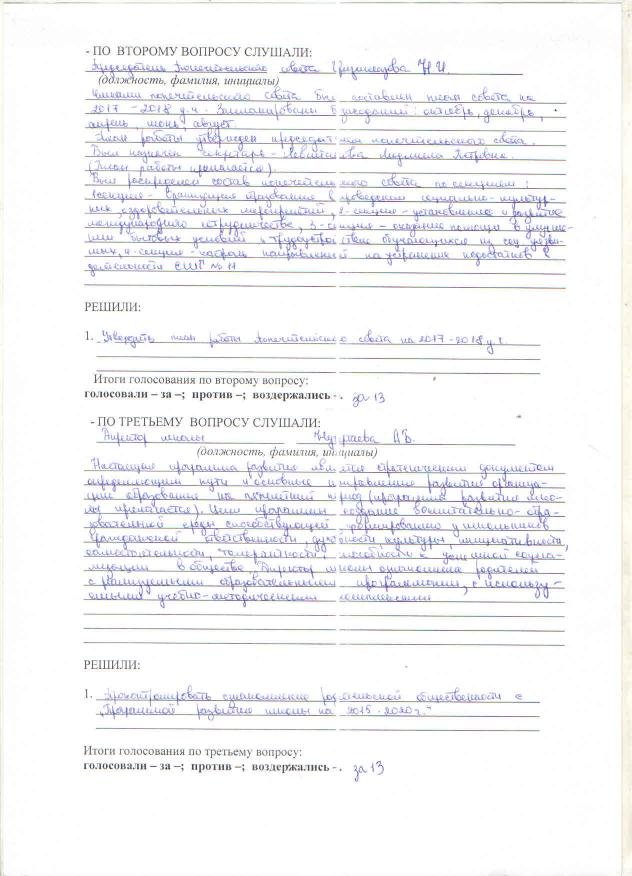 - ПО ВТОРОМУ ВОПРОСУ СЛУШАЛИ:
Председатель Попечительского совета Н.И.
(должность, фамилия, инициалы)
попечительского совета был составлен план совета на
2017 – 2018 у.г. Запланированы 5 заседаний: октябрь, декабрь,
апрель, июнь, август.
План работы утвержден председателем попечительского совета.
Был назначен секретарь – Людмила Петровна.
(План работы прилагается).
Был распределен состав попечительского совета по секциям:
1 секция – в проведении социально-культур-
ных оздоровительных мероприятий, 2-секция – установление и развитие
международного сотрудничества, 3-секция – оказание помощи в улучше-
нии бытовых условий и трудоустройстве обучающихся из соц уязви-
мых, 4-секция – на устранение недостатков в
деятельности СШГ № 11
РЕШИЛИ:
1. Утвердить план работы Попечительского совета на 2017-2018 у.г.
Итоги голосования по второму вопросу:
голосовали – за –; против –; воздержались - . за 13
- ПО ТРЕТЬЕМУ ВОПРОСУ СЛУШАЛИ:
Директор школы
(должность, фамилия, инициалы)
Настоящая программа развития является стратегическим документом
определяющим пути и основные направления развития организа-
ции образования на период (программа развития шко-
лы прилагается). Цели программы создание воспитательно-обра-
зовательной среды способствующей формированию у школьников
гражданской ответственности, духовности культуры, инициативности,
самостоятельности, толерантности, способности к успешной социа-
лизации в обществе. Директор школы ознакомила родителей
с образовательными программами, с использу-
емыми учебно-методическими комплексами
РЕШИЛИ:
1. Проконтролировать ознакомление родительской общественности с
"Программой развития школы на 2015-2020 г."
Итоги голосования по третьему вопросу:
голосовали – за –; против –; воздержались - . за 13